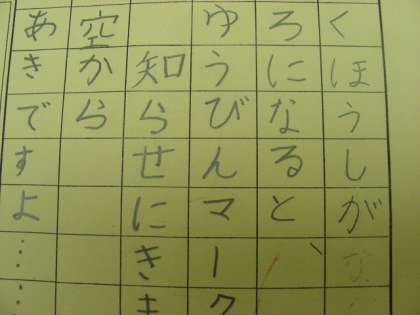 くほうしが
ろになると、
ゆうびんマーク
知らせにきま
空から
あきですよ……